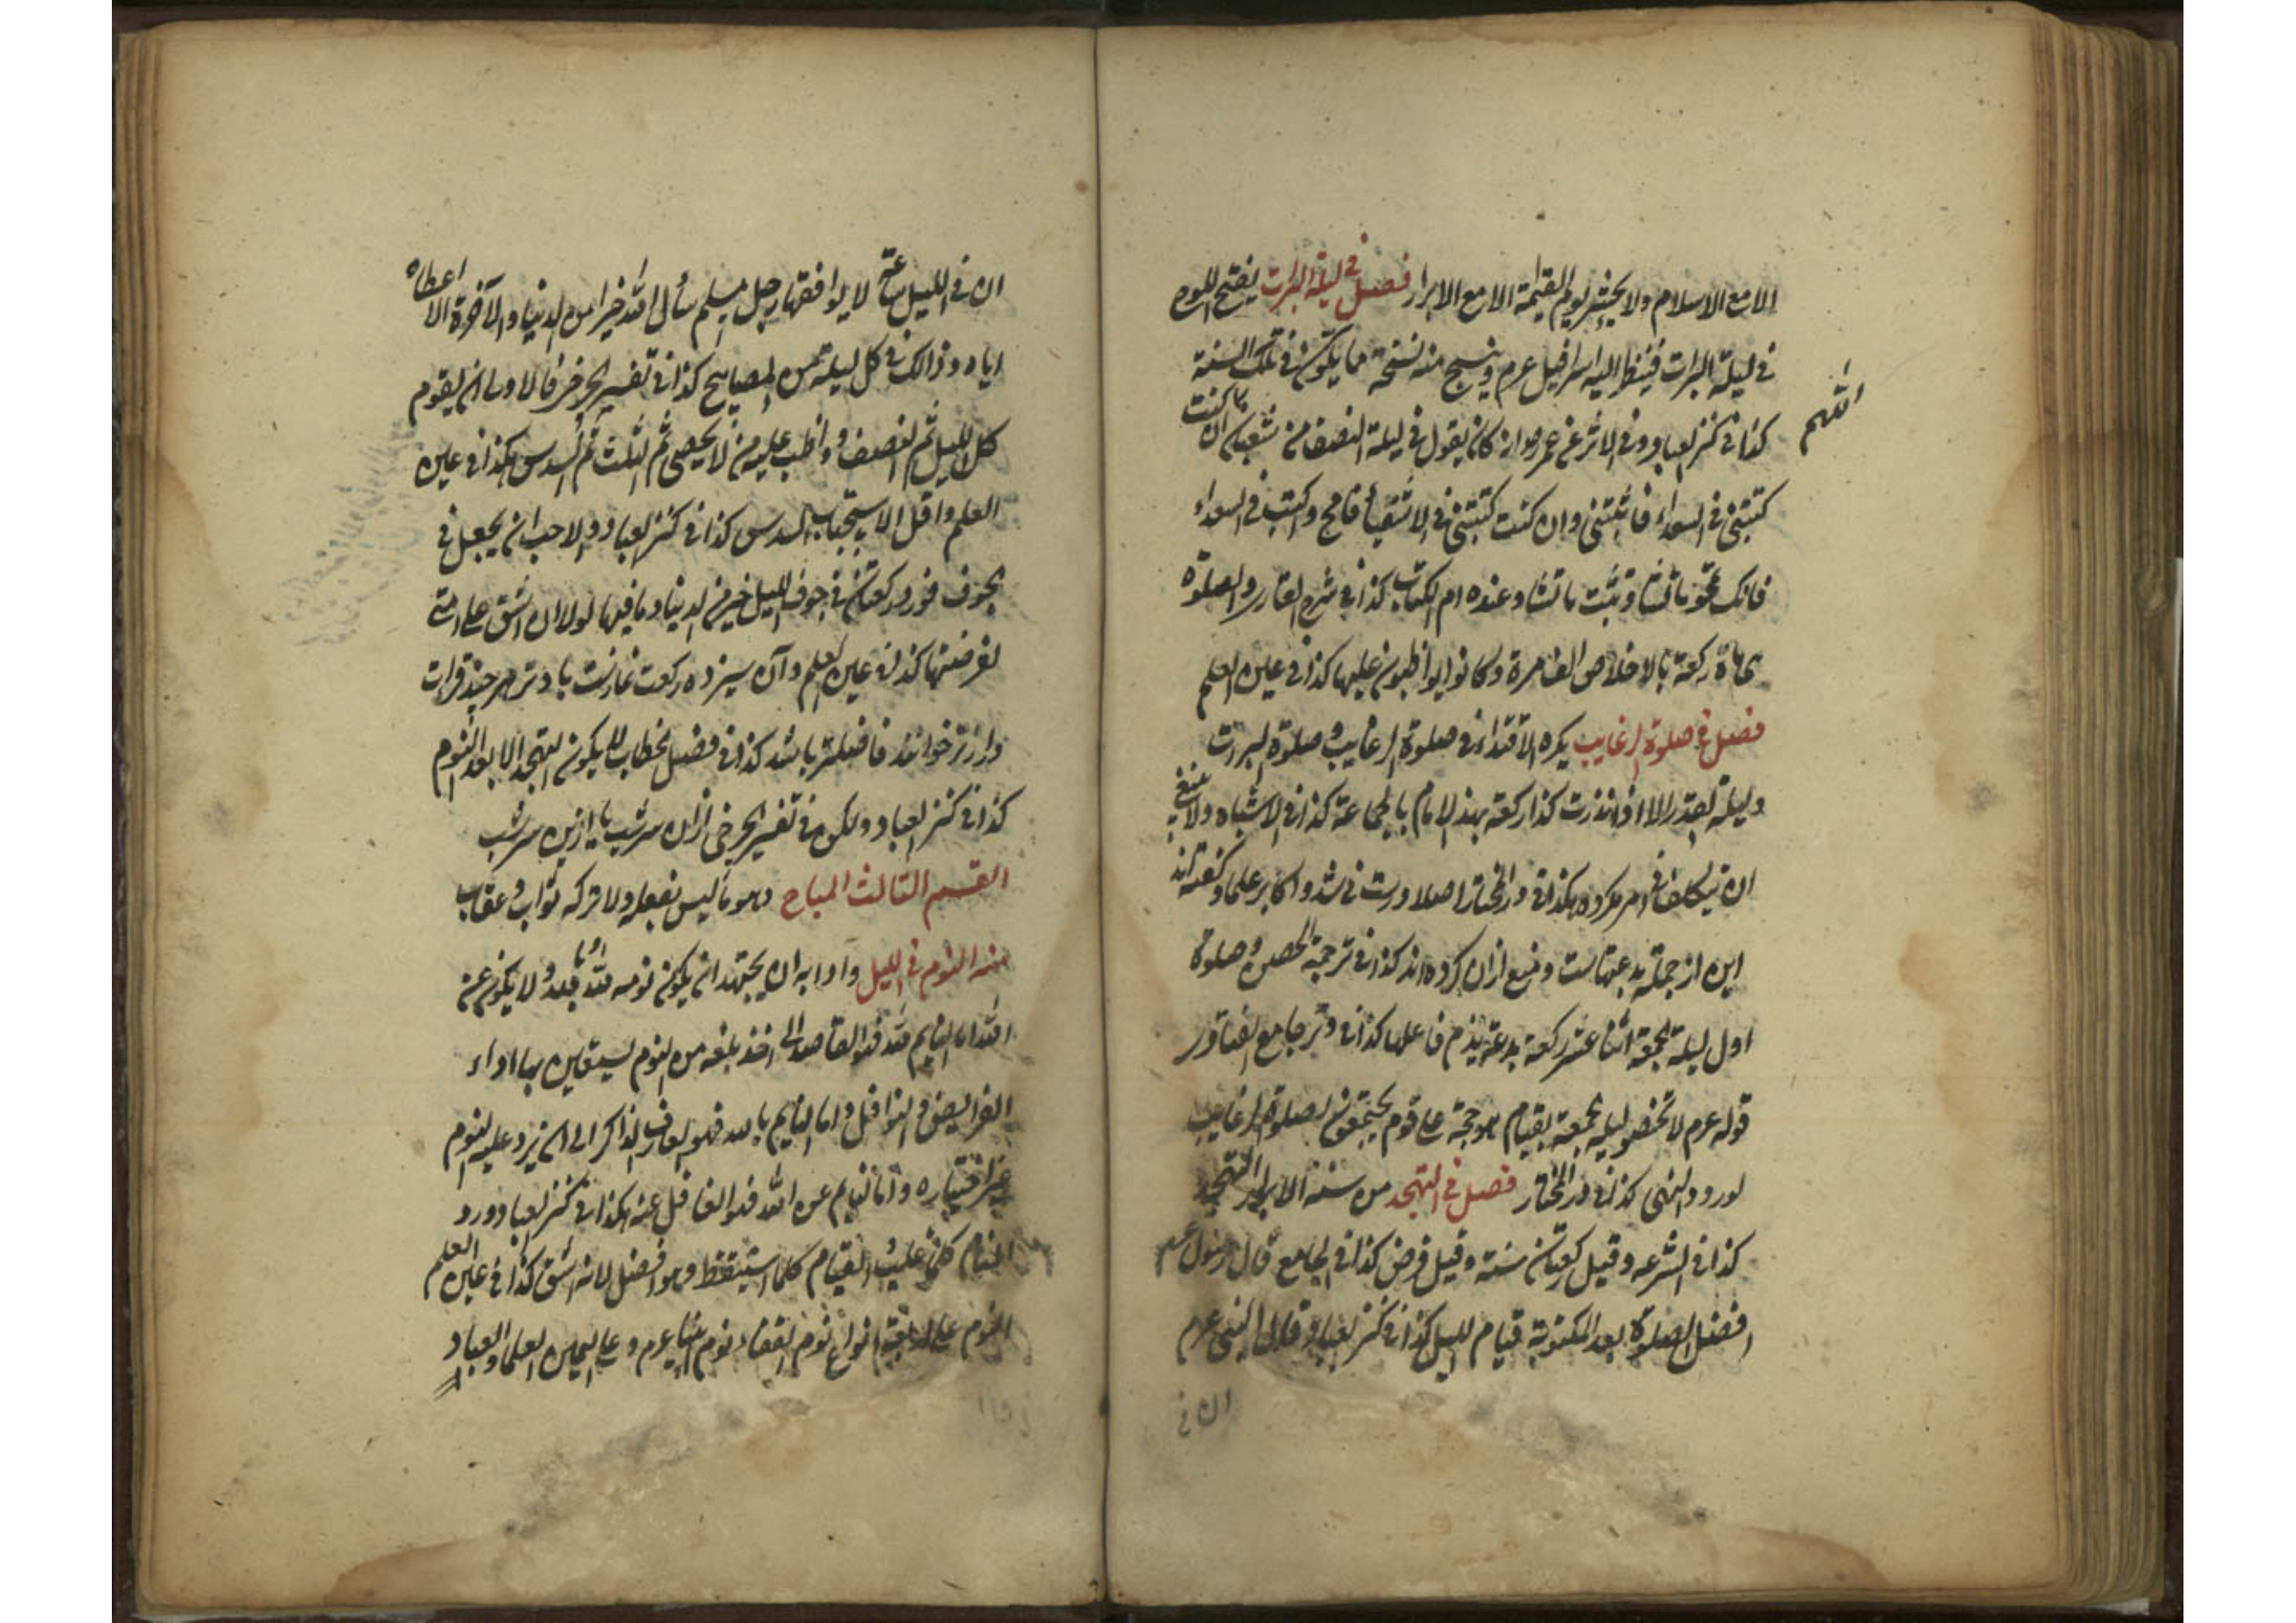 الا مع الاسلام ولا يحشر يوم القيمة الا مع الابرار فصل في ليلة البرات يفتح اللوح
في ليلة البرات فينظر اليه اسرافيل عرم وينسج منه نسخة مما يكون في تلك السنة
كذا في كنز العباد وفي الاثر عن عمر رض انه كان يقول في ليلة النصف من شعبان ان كنت
اللهم
كتبتني في السعداء فاثبتني وان كنت كتبتني في الاشقياء فامح واكتب في السعداء
فانك تمحو ما تشاء وتثبت ما تشاء وعنده ام الكتاب كذا في شرح القاري والصلوة
مائة ركعة بالاخلاص الف مرة وكانوا يواظبون عليها كذا في عين العلم
فصل في صلوة الرغايب يكره الاقتداء في صلوة الرغايب وصلوة البرات
وليلة القدر الا اذا نذرت كذا ركعة بهذا الامام بالجماعة كذا في الاشباه ولا ينبغي
ان يتكلف امر مكروه هكذا في در المختار اصلا درست نباشد واكابر علما گفته اند
اين از جملة بدعتهاست ومنع ازان كرده اند كذا في ترجمة الحصن وصلوة
اول ليلة الجمعة اثنا عشر ركعة بدعة يذم فاعلها كذا في جامع الفتاوى
قوله عرم لا تخصو ليلة الجمعة بقيام هو حجة على قوم يجتمعون لصلوة الرغايب
لورود النهى كذا في در المختار فصل في التهجد من سنة الابرار التهجد
كذا في الشرعه وقيل ركعتان سنة وقيل فرض كذا في الجامع قال رسول عم
افضل الصلوة بعد المكتوبة قيام الليل كذا في كنز العباد وقال النبي عرم
ان في
ان في الليل ساعة لا يوافقها رجل مسلم سأل الله خيرا من الدنيا والآخرة الا اعطاه
اياه وذالك في كل ليلة من المصابيح كذا في تفسير الجرخى فالاولى ان يقوم
كل الليل ثم النصف واظب عليه من لا يحصى ثم الثلث ثم السدس هكذا في عين
العلم واقل الاستحباب السدس كذا في كنز العباد والاحب ان يجعل في
الجوف فورد ركعتان في جوف الليل خير من الدنيا وما فيها لولا ان اشق على امتي
لفرضتها كذا في عين العلم وآن سيزده ركعت نمازست با وتر هر چند قرات
درازتر خوانند فاضلتر باشد كذا في فصل الخطاب لا يكون التهجد الا بعد النوم
كذا في كنز العباد ولكن في تفسير الجرخى ازان سر شب يا ازين سر شب
القسم الثالث المباح وهو ما ليس بفعله ولا تركه ثواب وعقاب
منه النوم في الليل وادابه ان يجتهد ان يكون نومه لله وبالله ولا يكون عن
الله اما النايم لله فهو القاصد الى اخذ بلغه من النوم ليستعين بها اداء
الفرايض والنوافل واما النايم بالله فهو العارف الذاكر الى ان يرد عليه النوم
غير اختياره واما النايم عن الله فهو الغافل عنه هكذا في كنز العباد وورد
المنام كلما غلب القيام كلما استيقظ وهو افضل لانه اشق كذا في عين العلم
النوم على اربعة انواع نوم القفاء نوم الانبياء عرم وعلى اليمين العلما والعباد